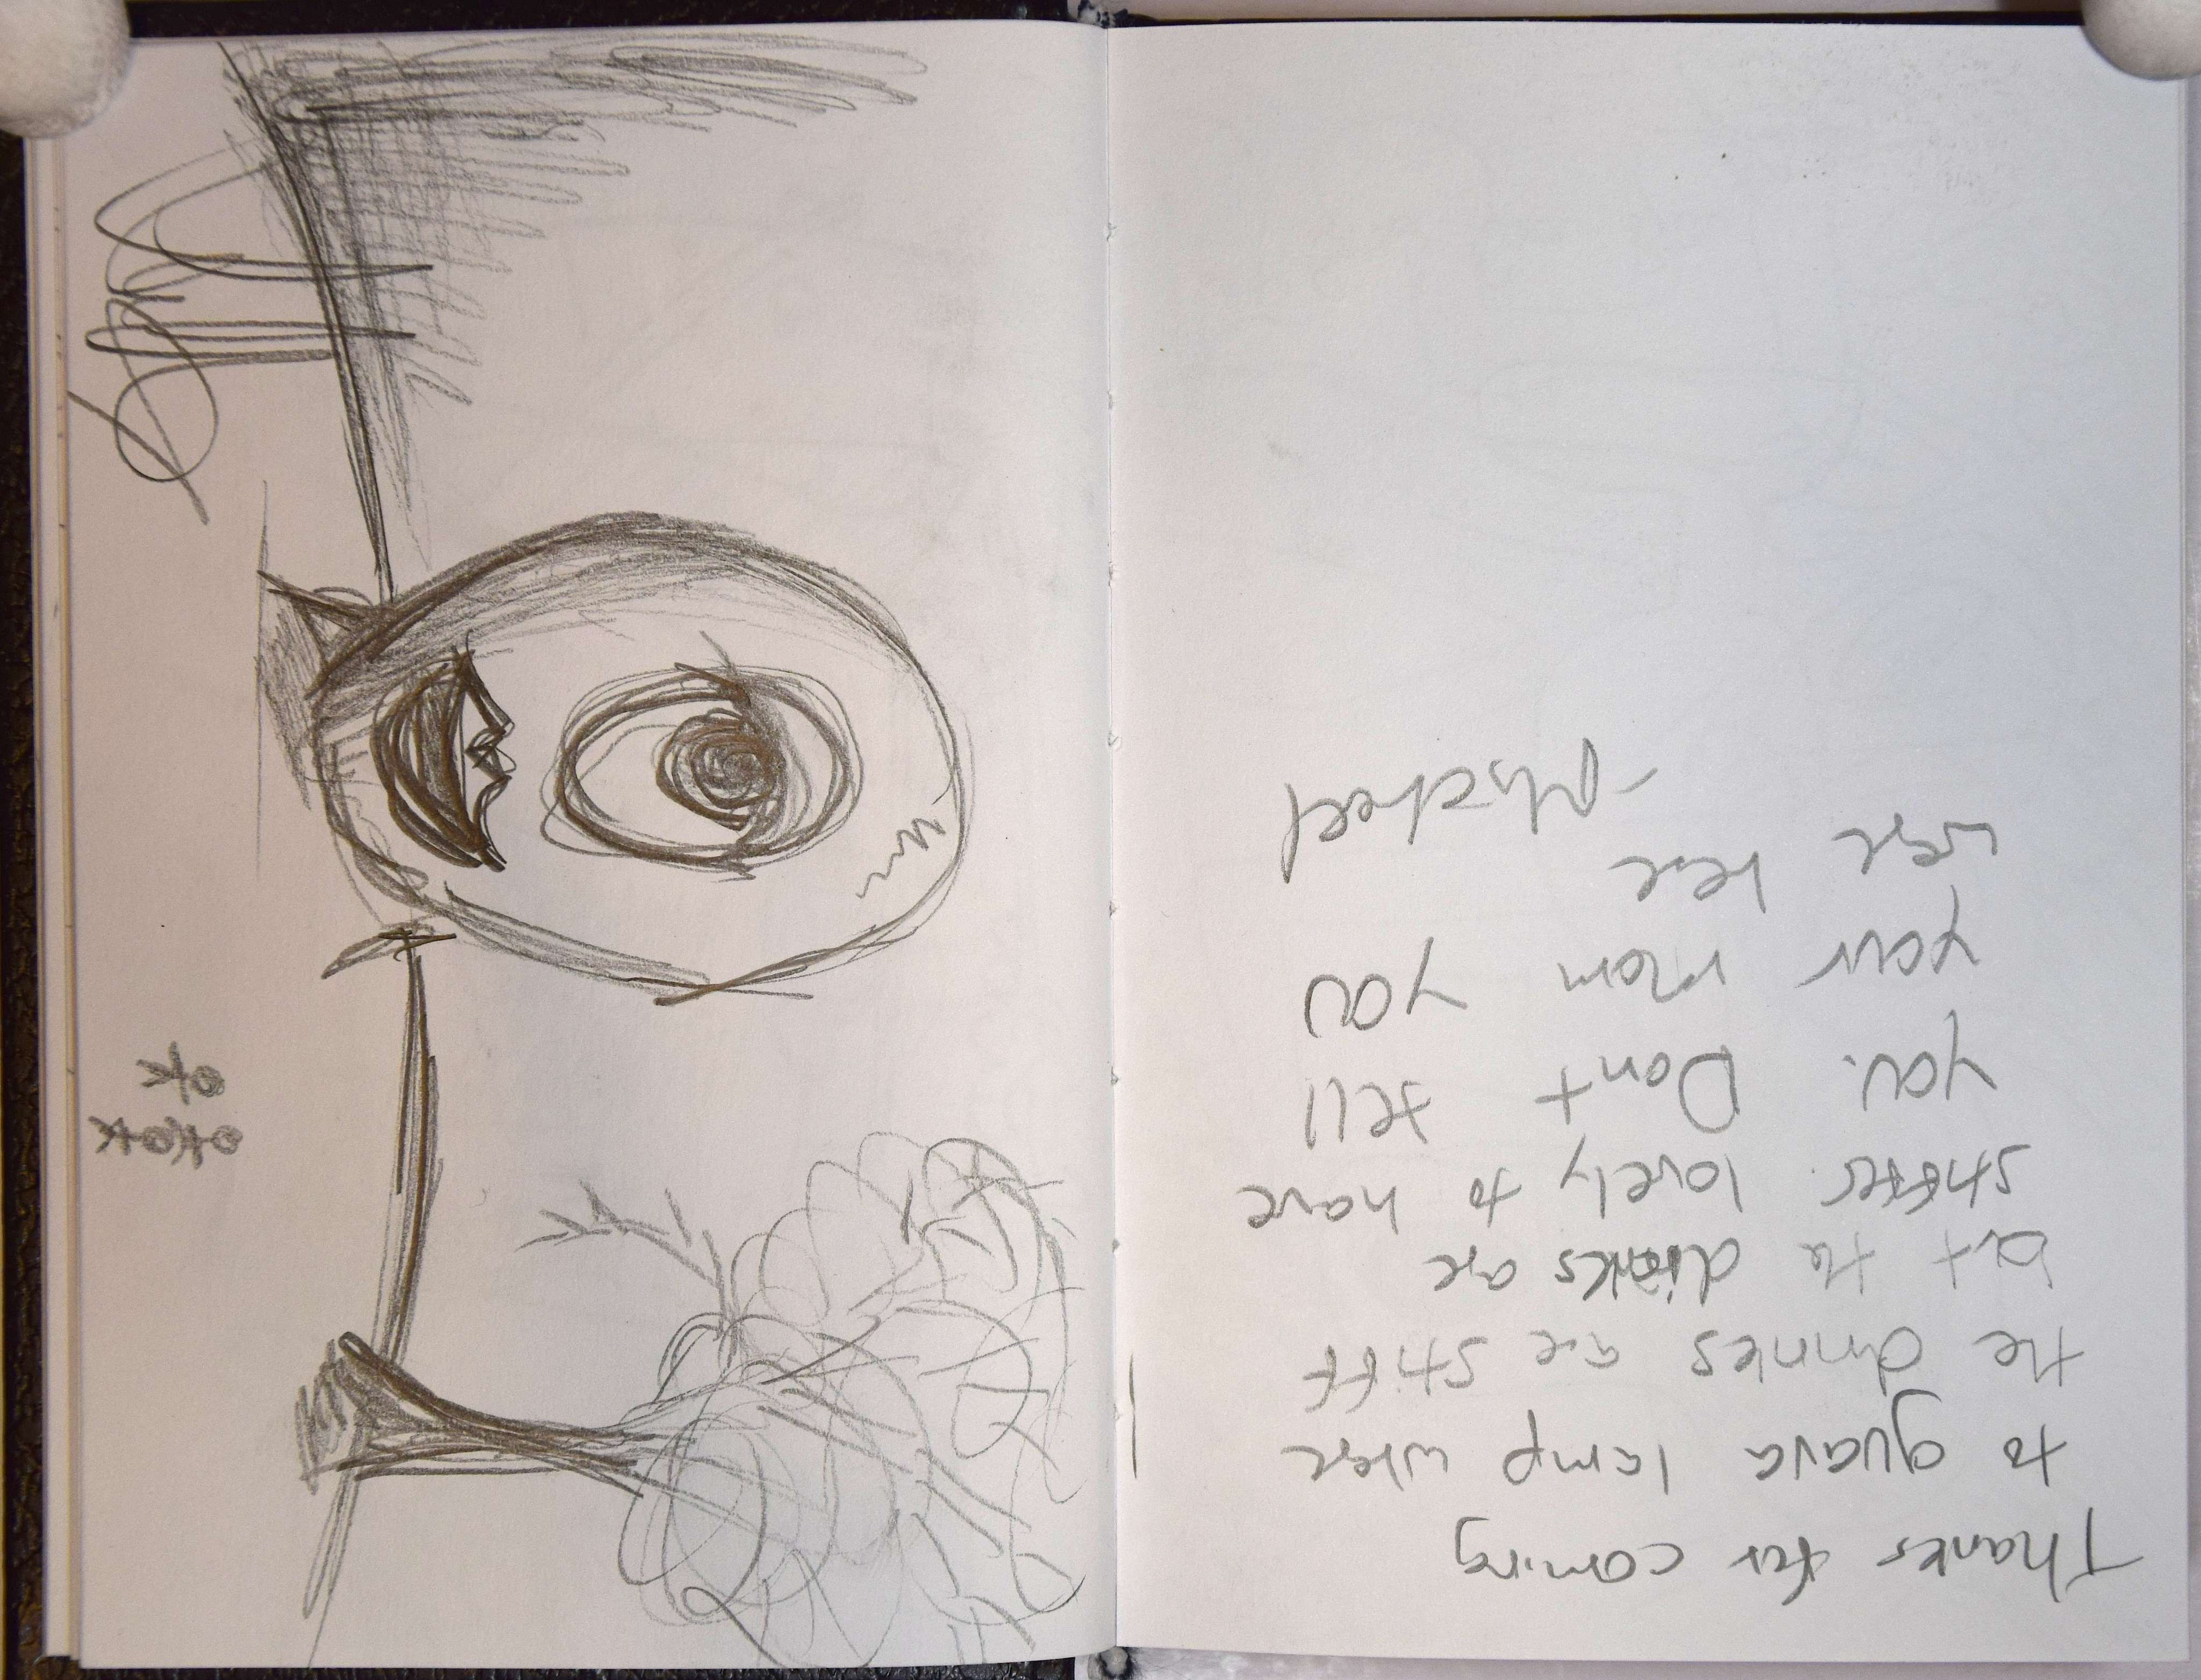 Thanks for coming
to guava lamp where
the drinks are stiff
but the are
stiffer. lovely to have
you. Dont tell
your mom you
were here
-Michael
OKOK
OK